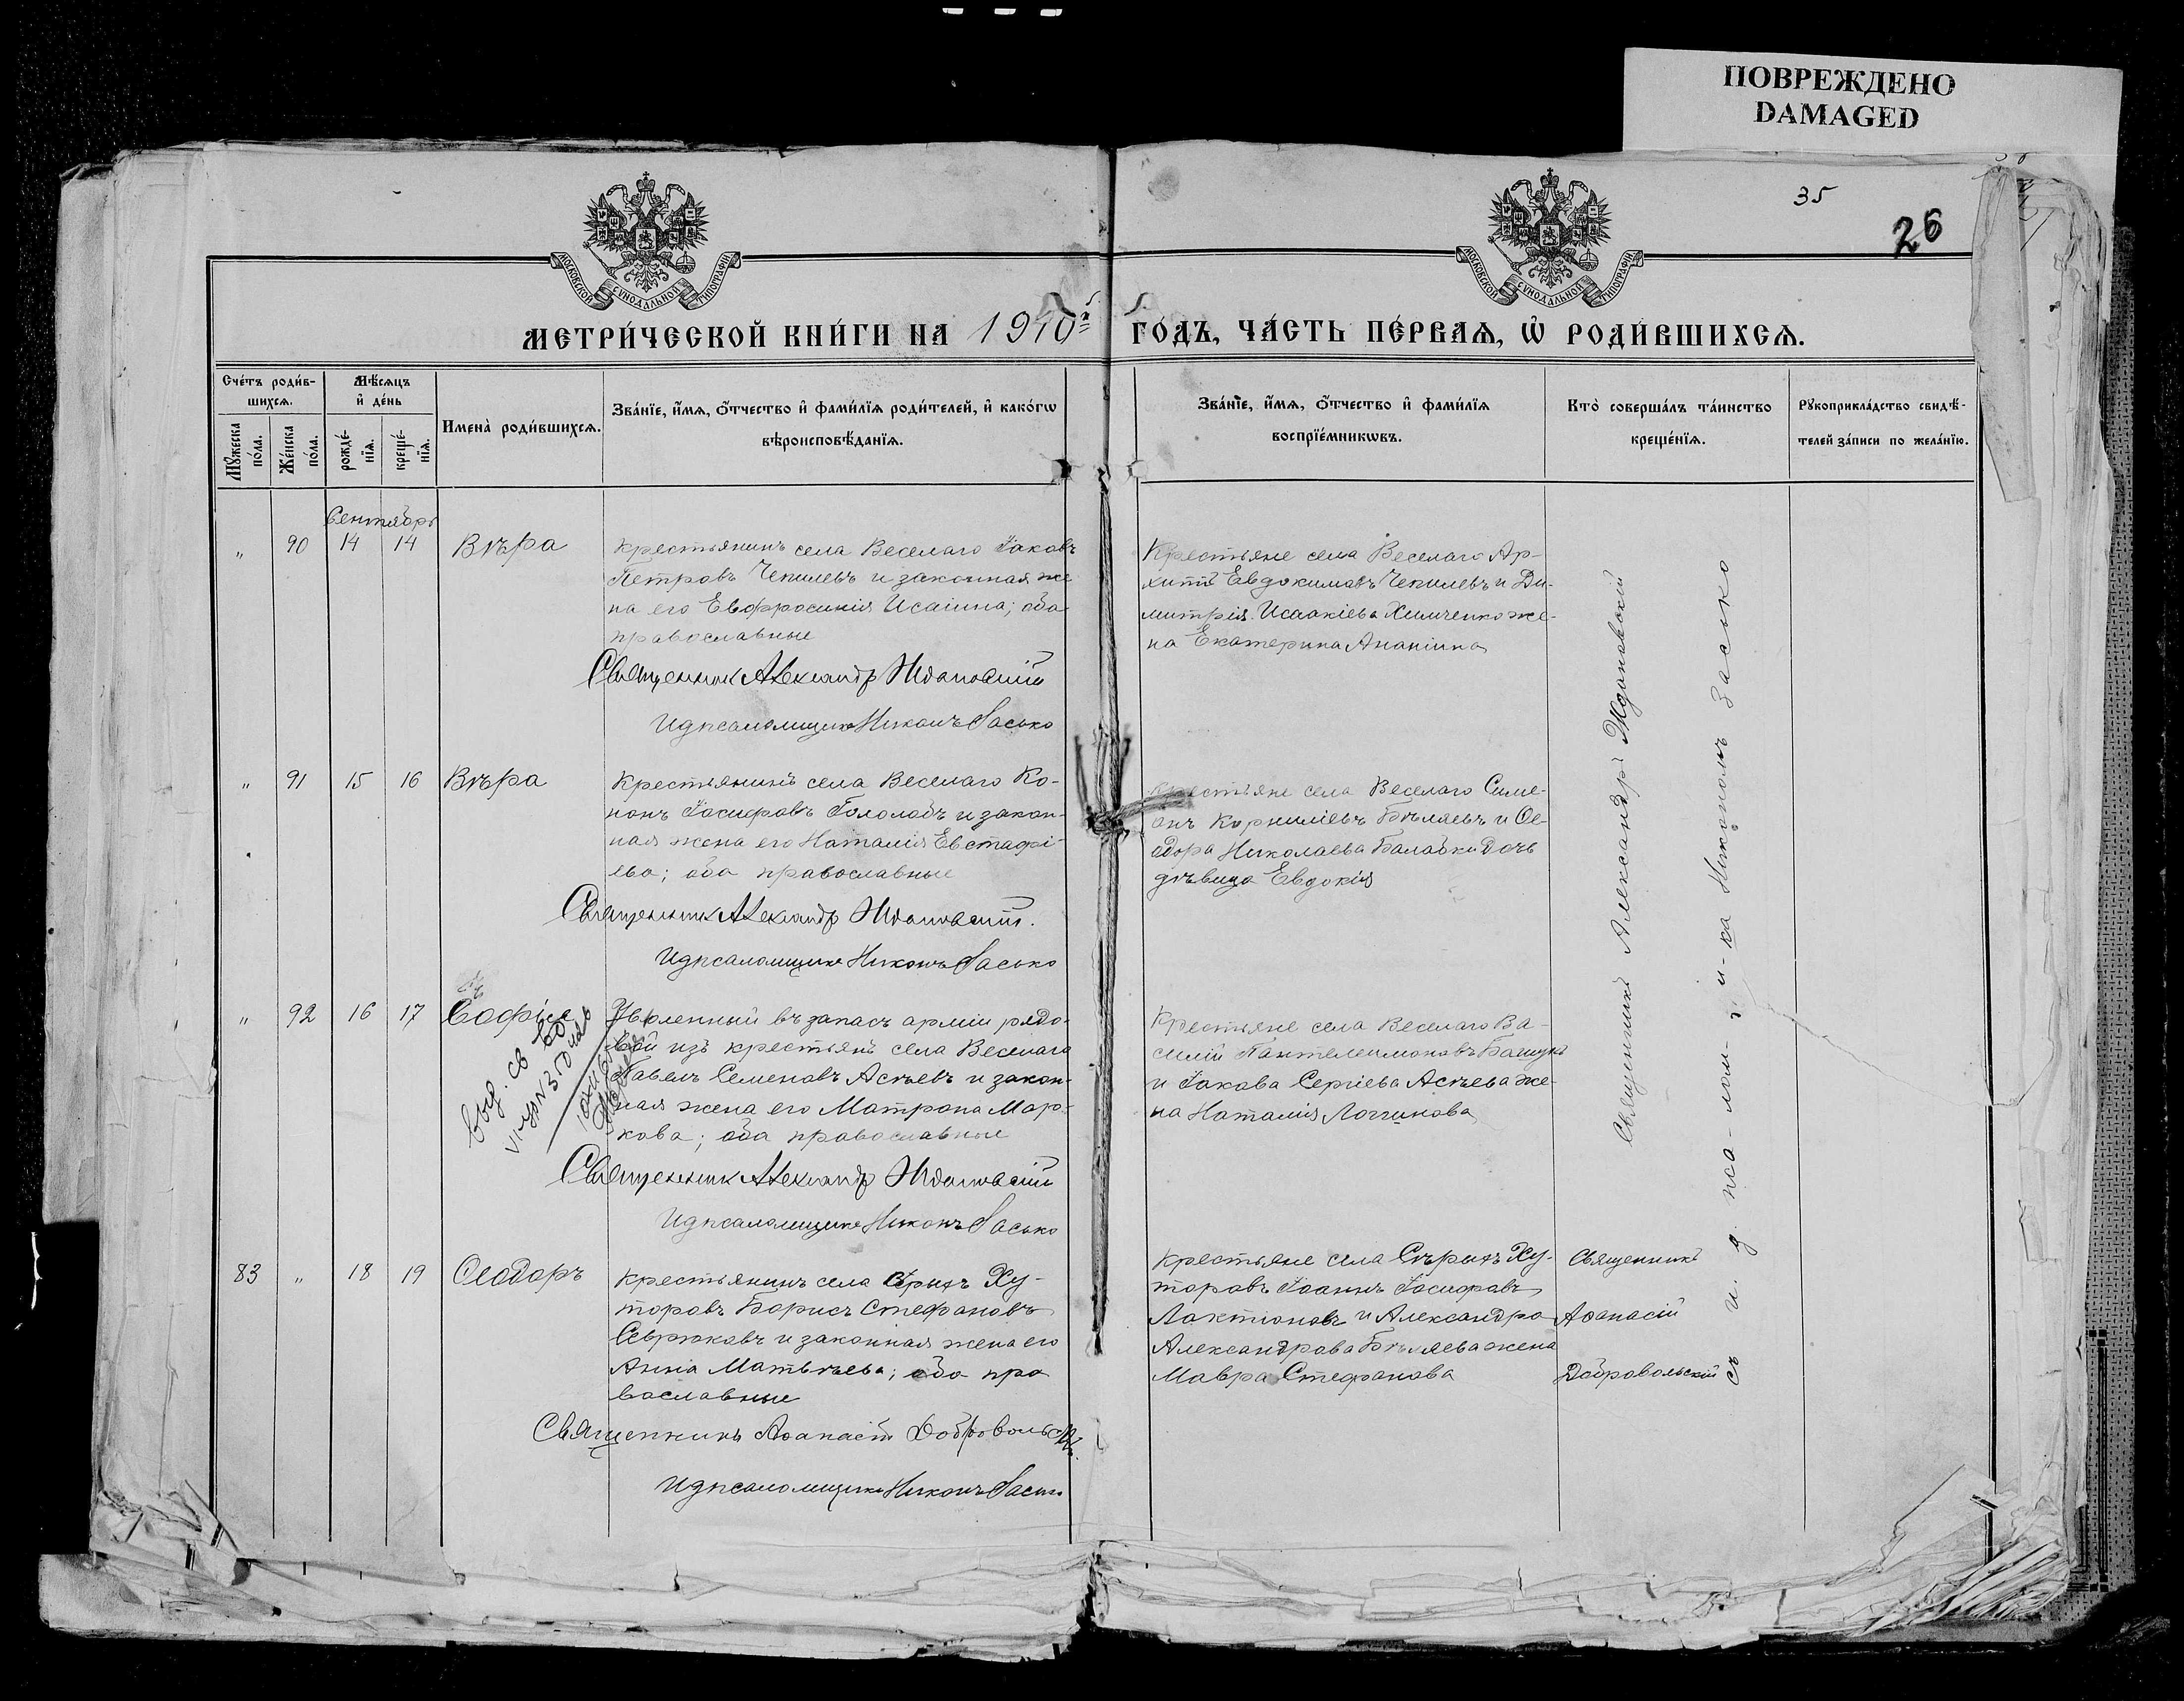 ПОВРЕЖДЕНО
DAMAGED
35
26
МОСКОВСКОЙ СѴНОДАЛЬНОЙ ТИПОГРАФІИ
МОСКОВСКОЙ СѴНОДАЛЬНОЙ ТИПОГРАФІИ
МЕТРИ́ЧЕСКОЙ КНИ́ГИ НА 1910 й ГО́ДЪ, ЧА́СТЬ ПЕ́РВАѦ, Ѡ҆ РОДИ́ВШИХСѦ.
Сче́тъ роди́в-
шихсѧ.
Мѣ́сѧцъ
и҆ де́нь
Мꙋ́жеска
по́ла.
Же́нска
по́ла.
рожде́-
нїѧ.
креще́-
нїѧ.
Имена̀ роди́вшихсѧ.
Зва́нїе, и҆́мѧ, ѻ҆́тчество и҆ фами́лїѧ роди́телей, и҆ како́гѡ
вѣроисповѣ́данїѧ.
Зва́нїе, и҆́мѧ, ѻ҆́тчество и҆ фами́лїѧ
воспрїе́мникѡвъ.
Кто̀ соверша́лъ та́инство
креще́нїѧ.
Рꙋкоприкла́дство свидѣ́-
телей за́писи по жела́нїю.
Сентябрь
„ 90 14 14 Вѣра
Крестьянинъ села Веселаго Іаковъ
Петровъ Чепилевъ и законная же
на его Евфросинія Исаіина; оба
православные
Священник Александр Ждановскій
И д псаломщика Никонъ Засько
Крестьяне села Веселаго Ар-
хиппъ Евдокимовъ Чепилевъ и Ди-
митрія Исаакіева Химченко же-
на Екатерина Ананіина
„ 91 15 16 Вѣра
Крестьянинъ села Веселаго Ко-
нонъ Іосифовъ Гололобъ и закон-
ная жена его Наталія Евстафі-
ева; оба православные
Священник Александр Ждановскій.
И д псаломщика Никонъ Засько
Крестьяне села Веселаго Симе-
онъ Корниліевъ Бѣляевъ и Ѳе-
одора Николаева Балабки дочь
дѣвица Евдокія
„ 92 16 17 Софія
выд. св
Уволенный въ запасъ арміи рядо-
вой изъ крестьянъ села Веселаго
Павелъ Семеновъ Асѣевъ и закон-
ная жена его Матрона Мар-
кова; оба православные
Священник Александр Ждановскій
И д псаломщика Никонъ Засько
Крестьяне села Веселаго Ва-
силій Пантелеимоновъ
и Іакова Сергіева Асѣева же-
на Наталія Логгинова
83 „ 18 19 Ѳеодоръ
Крестьянинъ села Сѣрыхъ Ху-
торовъ Борисъ Стефановъ
Севрюковъ и законная жена его
Анна Матвѣева; оба пра
вославные
Священникъ Аѳанасій Добровольскій.
И д псаломщика Никонъ Засько
Крестьяне села Сѣрыхъ Ху-
торовъ Іоаннъ Іосифовъ
Лактіоновъ и Александра
Александрова Бѣляева жена
Мавра Стефанова
Священникъ
Аѳанасій
Добровольскій
Священникъ Александръ Ждановскій
съ и. д. пса-лом-щ-и-ка Никономъ Засько